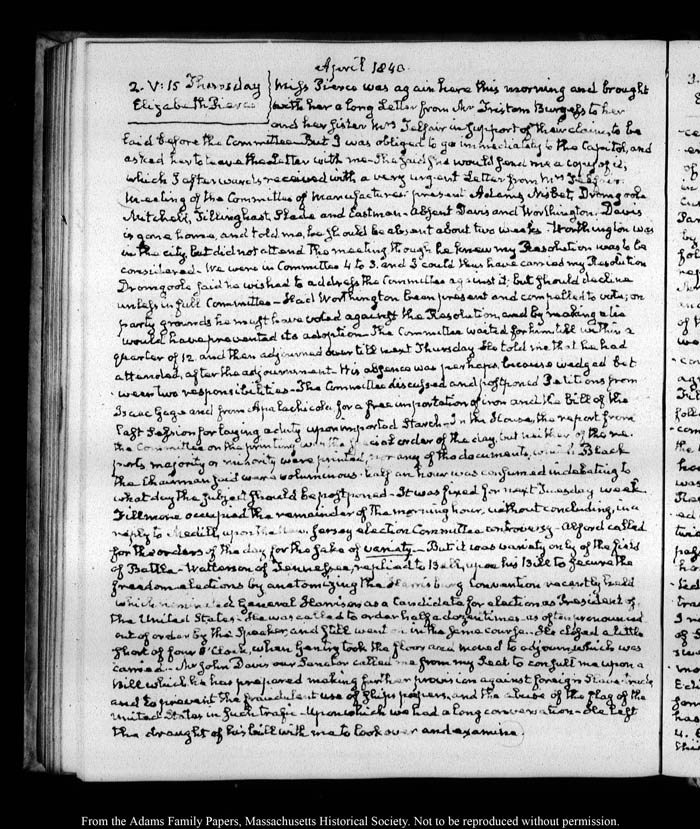 April 1840.
2. V:15 Thursday
Elizabeth Pierce
Miss Pierce was again here this morning and brought
with her a long Letter from Mr Tristam Burgess to her
and her Sister Mrs Telfair in support of their claim, to be
laid before the Committee. But I was obliged to go immediately to the Capitol, and
asked her to leave the Letter with me. She said she would send me a copy of it,
which I afterwards received with a very urgent Letter from Mrs Telfair.
Meeting of the Committee of Manufactures present Adams, Nisbet, Dromgoole
Mitchell, Tillinghast, Slade and Eastman. Absent Davis and Worthington. Davis
is gone home, and told me, he should be absent about two weeks. Worthington was
in the city, but did not attend the meeting though he knew my Resolution was to be
considered. We were in Committee 4 to 3. and I could thus have carried my Resolution
Dromgoole said he wished to address the Committee against it; but should decline
unless in full Committee. Had Worthington been present and compelled to vote, on
party grounds he must have voted against the Resolution, and by making a tie
would have prevented its adoption. The Committee waited for him till within a
quarter of 12. and then adjourned over till next Thursday. He told me that he had
attended, after the adjournment. His absence was perhaps, because wedged bet
ween two responsibilities. The Committee discussed and postponed Petitions from
Isaac Gage and from Apalachicola, for a free importation of iron and the bill of the
last Session for laying a duty upon imported Starch. In the House, the report from
the Committee on the printing was the special order of the day, but neither of the re
ports majority or minority were printed, nor any of the documents, which Black
the Chairman said were voluminous. half an hour was consumed in debating to
what day the subject should be postponed. It was fixed for next Tuesday week.
Fillmore occupied the remainder of the morning hour, without concluding, in a
reply to Medill, upon the New Jersey election Committee controversy. Alford called
for the orders of the day for the sake of variety. But it was variety only of the field
of Battle. Watterson of Tennessee, replied to Bell, upon his Bill to secure the
freedom of elections by anatomizing the Harrisburg convention recently held
which nominated General Harrison as a Candidate for election as President of
the United States. He was called to order half a dozen times. as often pronounced
out of order by the Speaker, and still went on in the same course. He closed a little
short of four O'Clock, when Gentry took the floor and moved to adjourn, which was
carried. Mr John Davis our Senator called me from my seat to consult me upon a
Bill which he has prepared making further provision against foreign Slave-trade
and to prevent the fraudulent use of ships papers, and the abuse of the flag of the
United States in such trafic. Upon which we had a long conversation. He left
the draught of his bill with me to look over and examine.
From the Adams Family Papers, Massachusetts Historical Society. Not to be reproduced without permission.